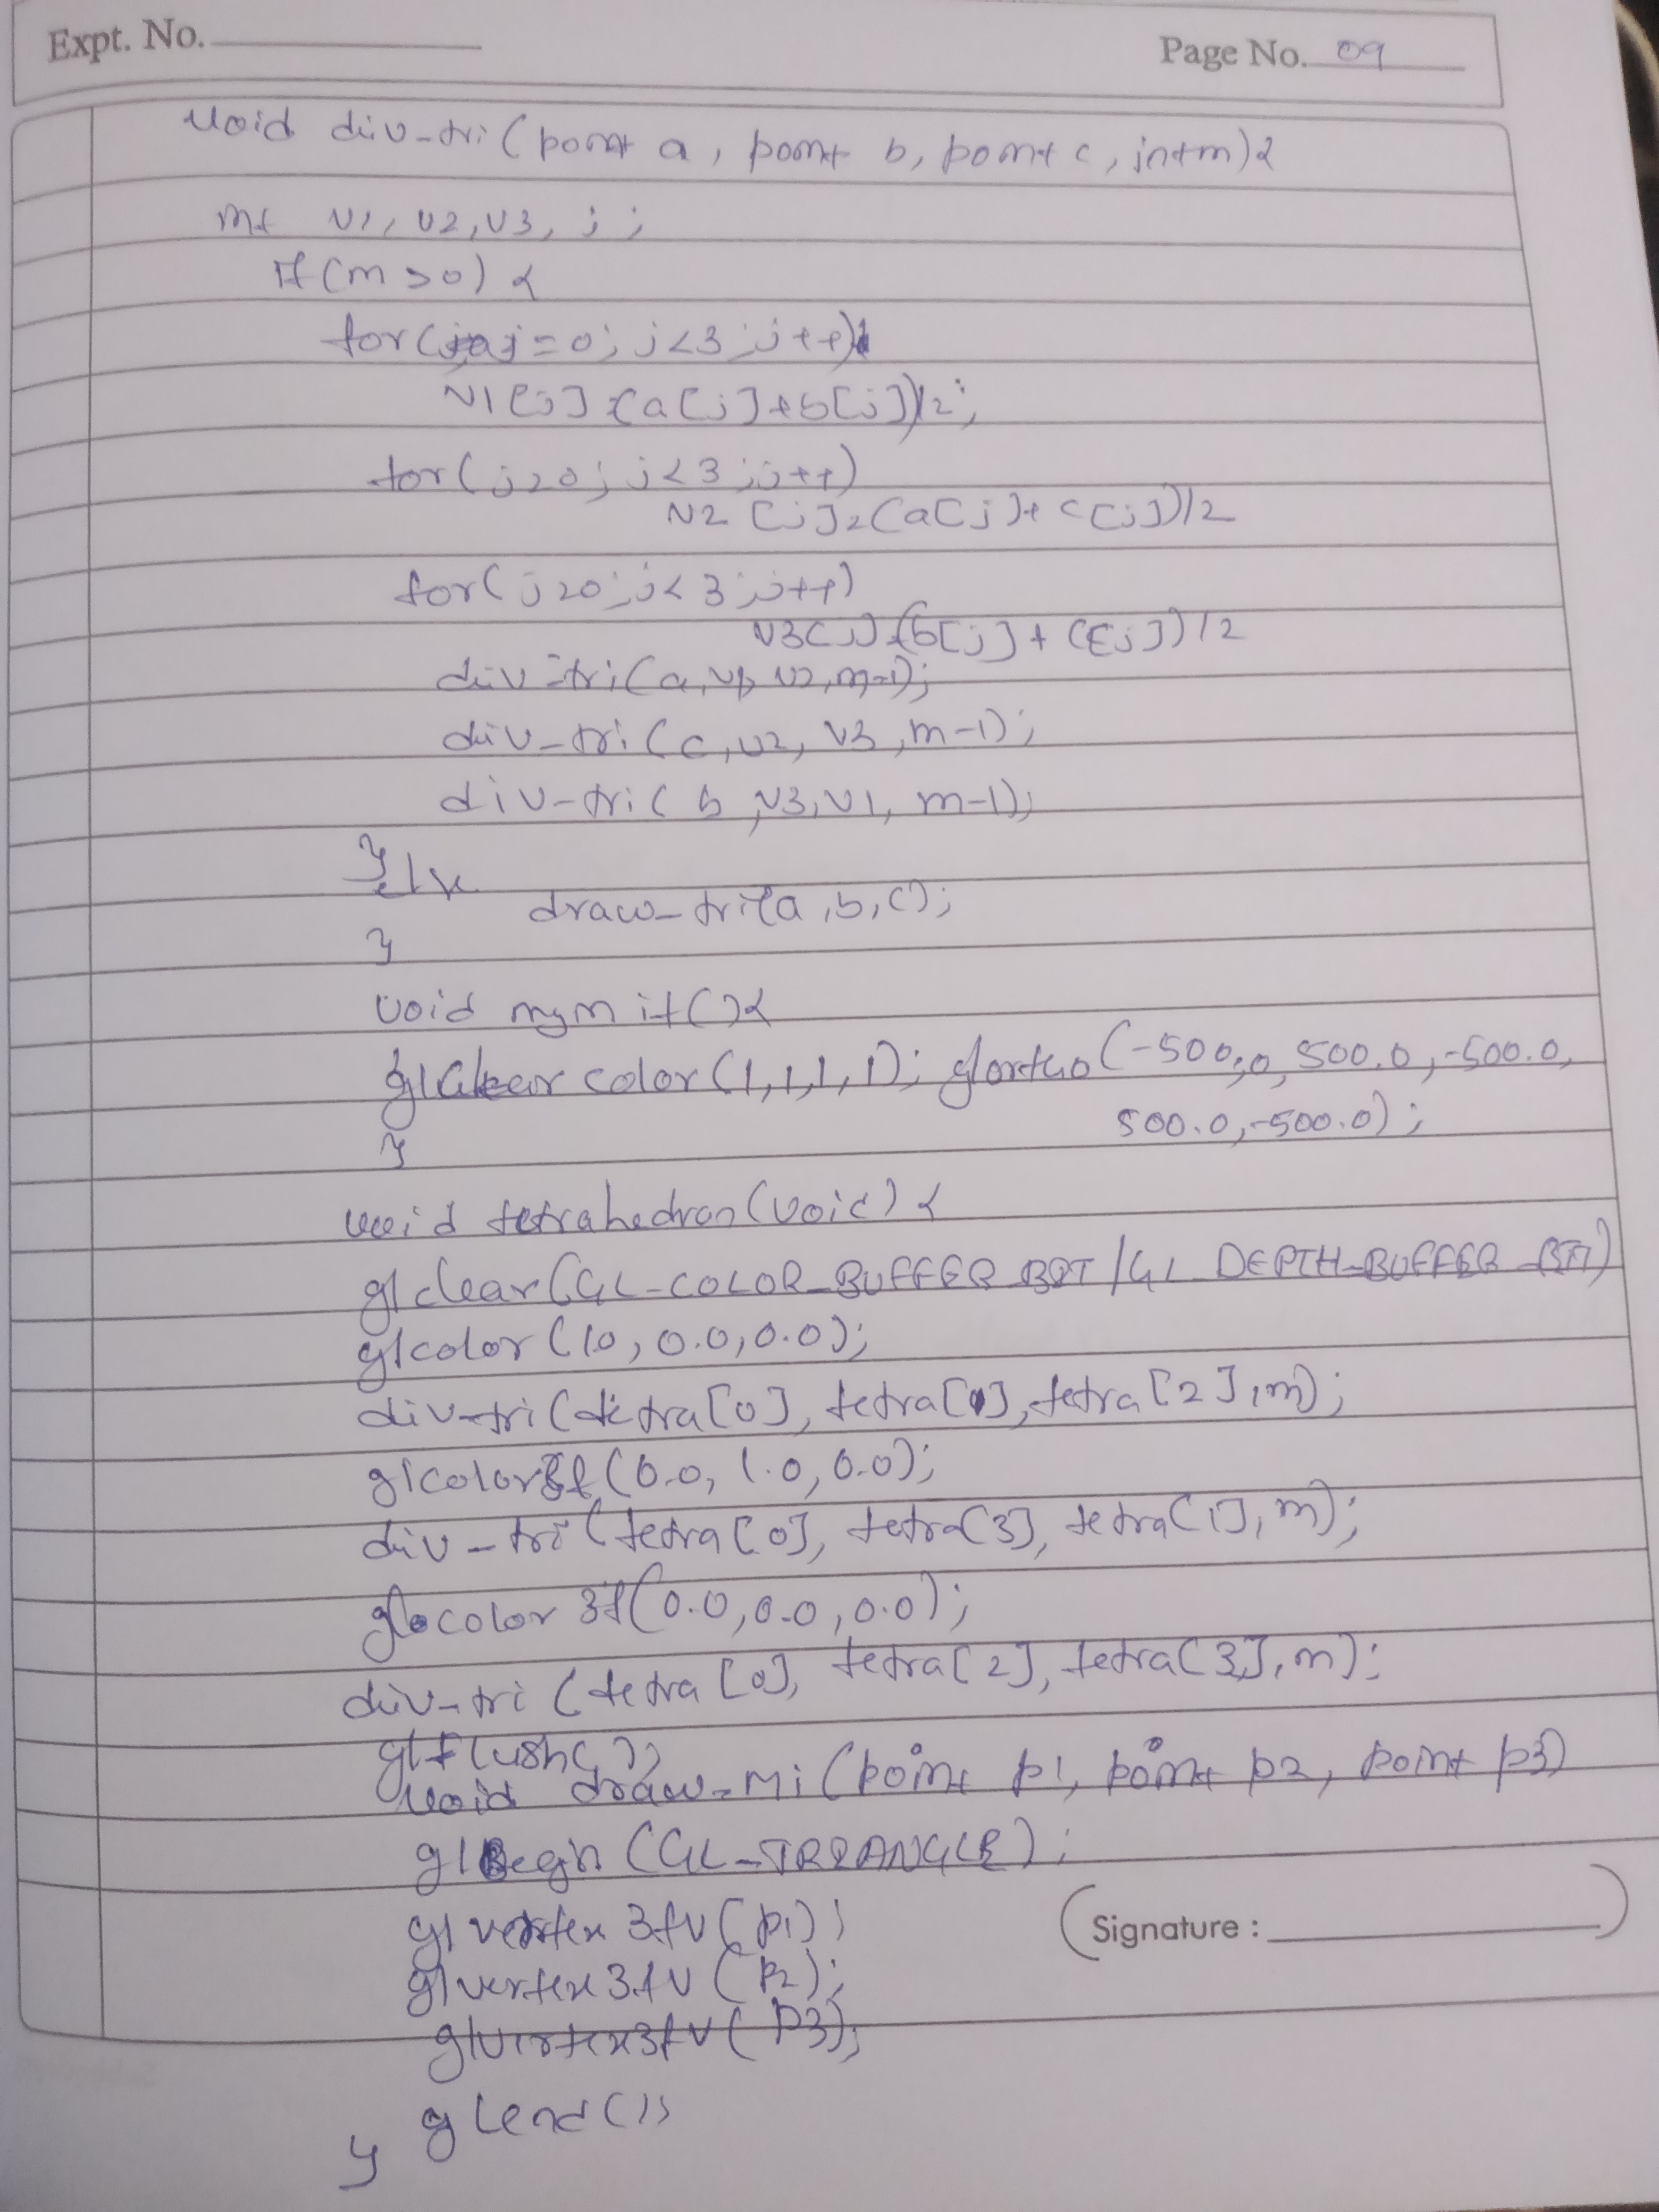 Expt. No.
Page No. 09
void div-tri(point a, point b, point c, int m){
int v1, v2, v3, j;
if(m>0){
for(j=0; j<3; j++)
v1[j]=(a[j]+b[j])/2;
for(j=0; j<3; j++)
v2[j]=(a[j]+c[j])/2
for(j=0; j<3; j++)
v3[j]=(b[j]+c[j])/2
div-tri(a, v1, v2, m-1);
div-tri(c, v2, v3, m-1);
div-tri(b, v3, v1, m-1);
}
else
draw-tri(a, b, c);
}
void myinit(){
glclear color(1,1,1,1); glortho(-500.0, 500.0, -500.0,
500.0, -500.0);
}
void tetrahedron(void){
glclear(GL-COLOR_BUFFER_BIT/GL_DEPTH_BUFFER_BIT)
glcolor(1.0, 0.0, 0.0);
div-tri(tetra[0], tetra[1], tetra[2], m);
glcolor3f(0.0, 1.0, 0.0);
div-tri(tetra[0], tetra[3], tetra[1], m);
glcolor 3f(0.0, 0.0, 0.0);
div-tri(tetra[0], tetra[2], tetra[3], m);
glFlush();
void draw-tri(point p1, point p2, point p3)
glBegin(GL-TRIANGLE);
glvertex 3fv(p1);
glvertex3fv(p2);
glvertex3fv(p3);
glend();
}
Signature :